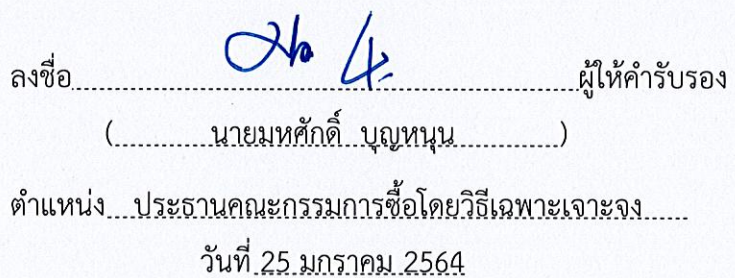 ลงชื่อ..........................................................ผู้ให้คำรับรอง
(............นายมหศักดิ์ บุญหนุน............)
ตำแหน่ง...ประธานคณะกรรมการซื้อโดยวิธีเฉพาะเจาะจง.....
วันที่ 25 มกราคม 2564